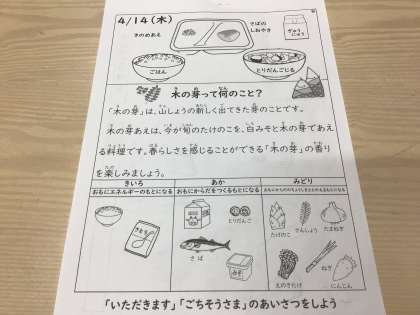 4/14(木)
きのめあえ
さばの
しおやき
ぎゅう
にゅう
ごはん
とりだんごじる
木の芽って何のこと?
「木の芽」は、山しょうの新しく出てきた芽のことです。
木の芽あえは、今が旬のたけのこを、白みそと木の芽であえ
る料理です。春らしさを感じることができる「木の芽」の香り
を楽しみましょう。
きいろ
あか
みどり
おもにエネルギーのもとになる
おもにからだをつくるもとになる
さとう
とりだんご
さば
みそ
たけのこ
さんしょう
たまねぎ
えのきたけ
ねぎ
にんじん
「いただきます」「ごちそうさま」のあいさつをしよう